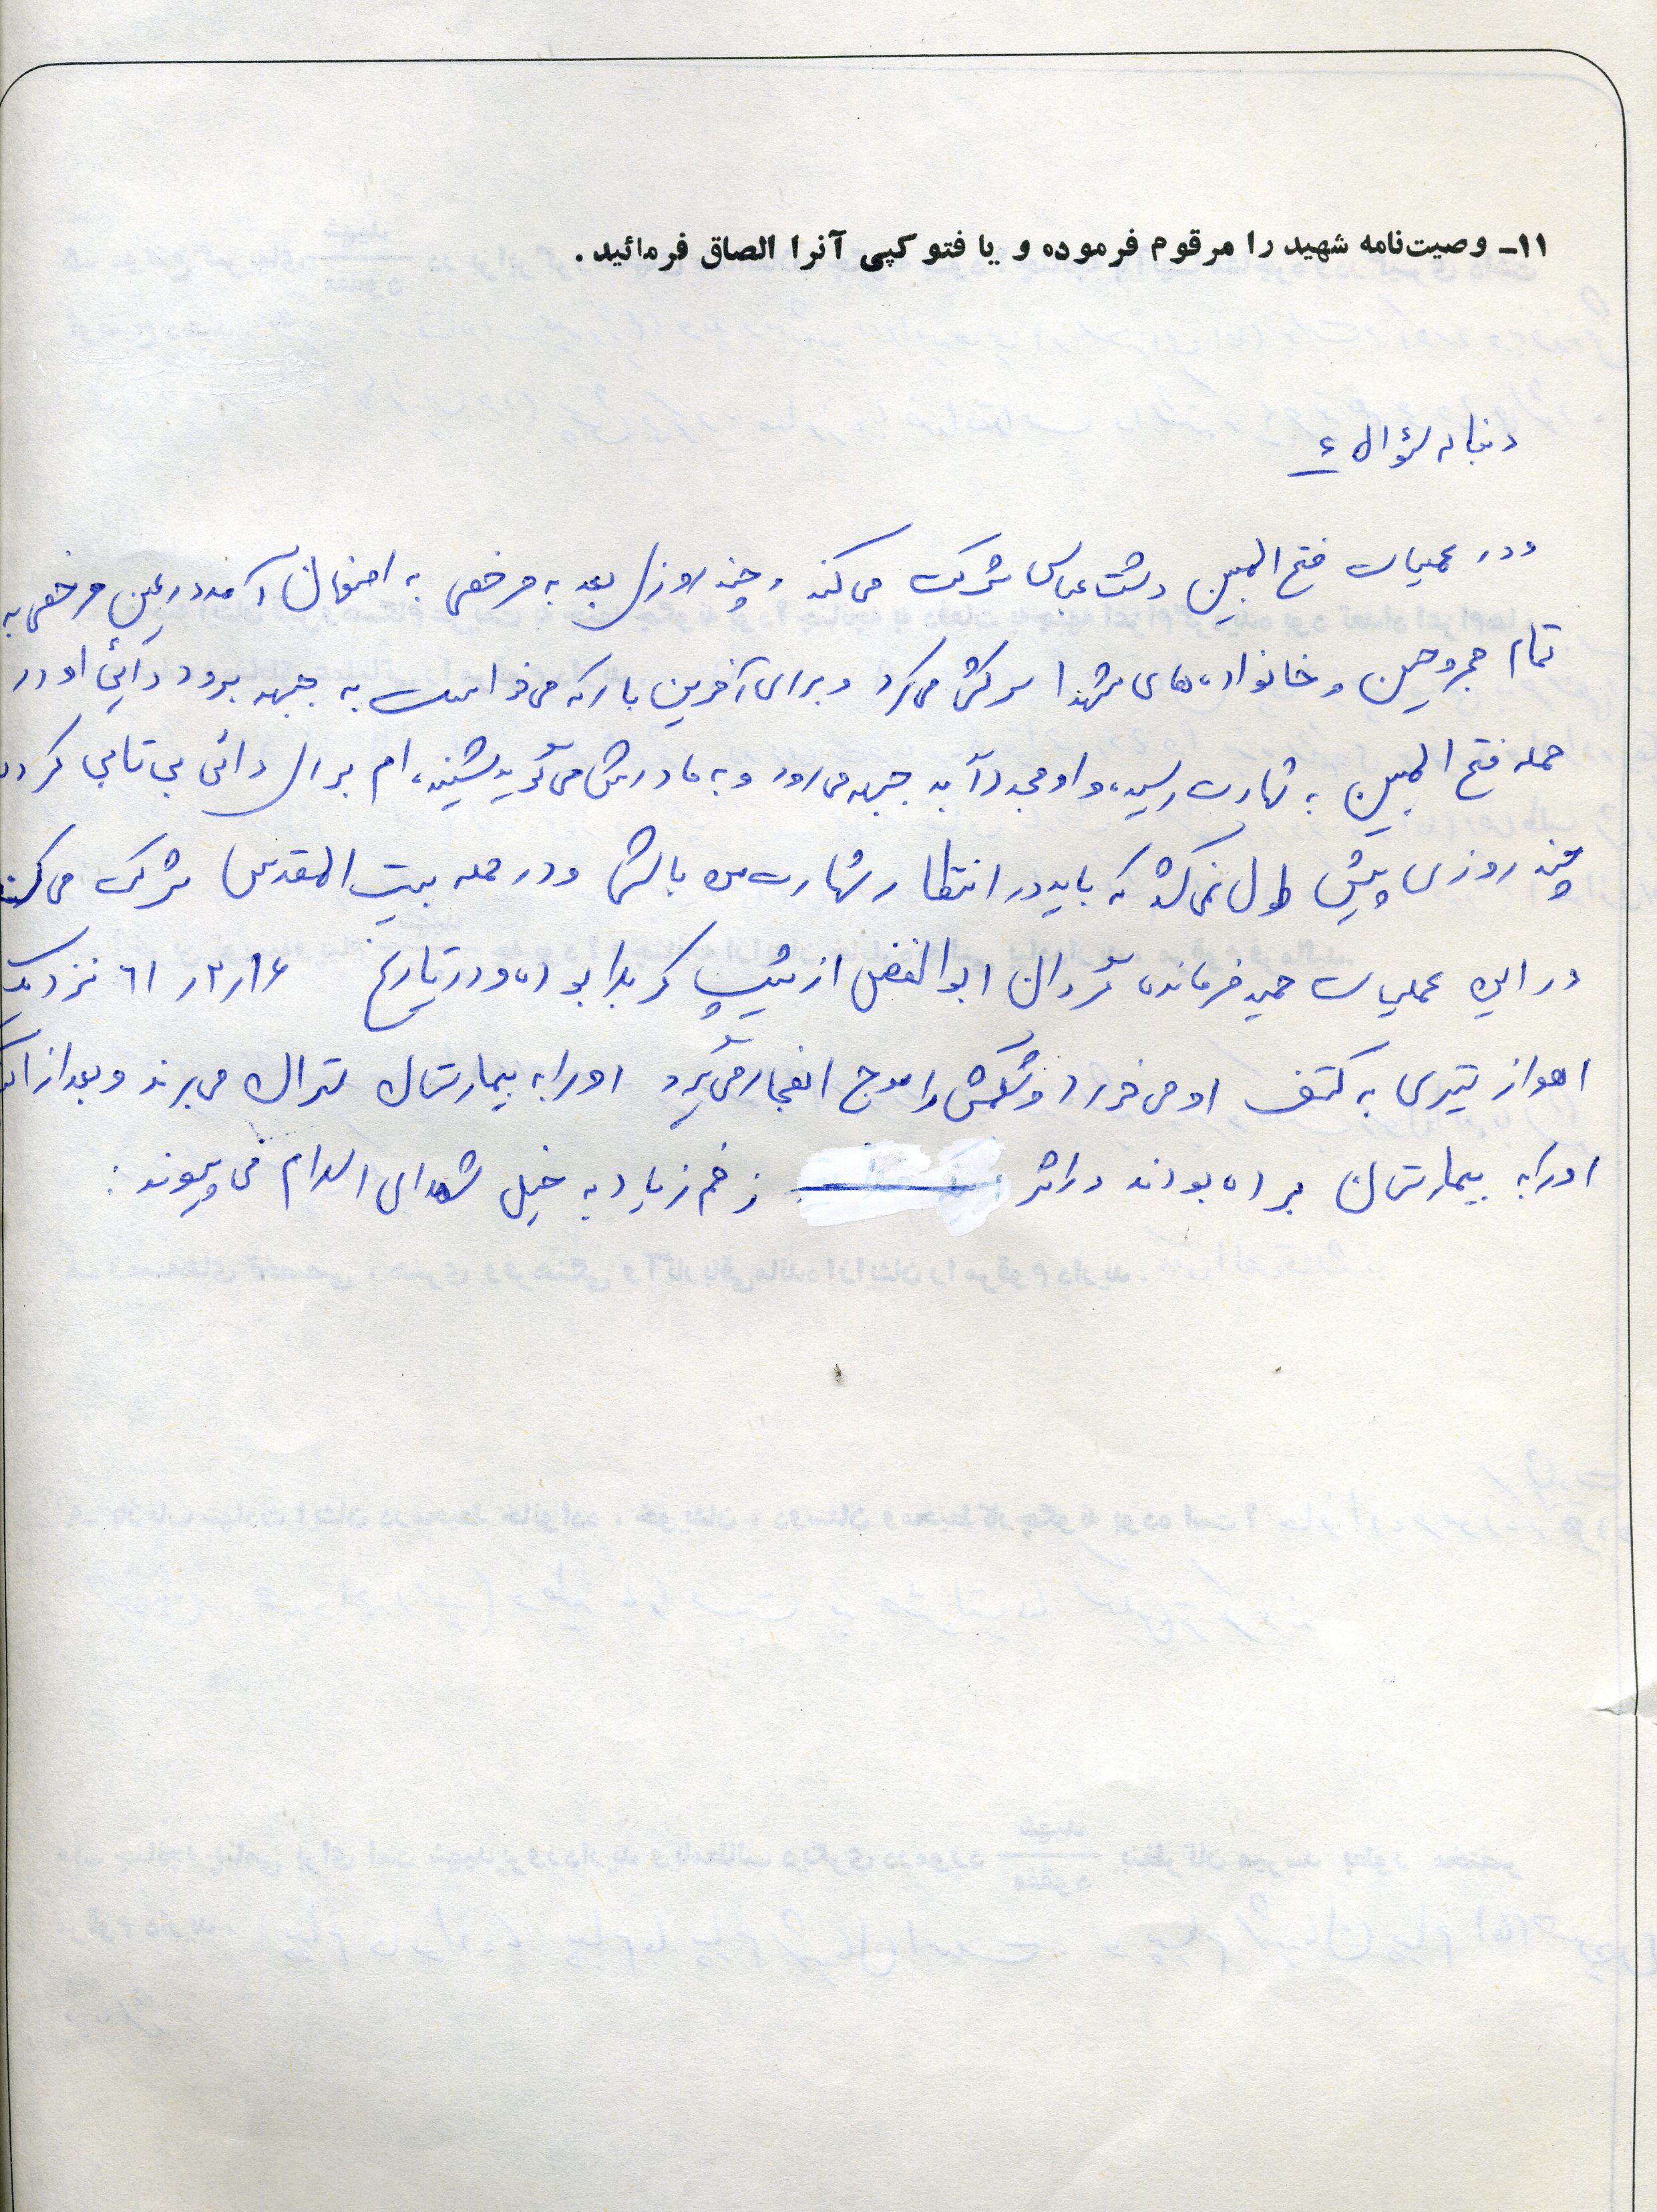 ۱۱ـ وصیت‌نامه شهید را مرقوم فرموده و یا فتوکپی آنرا الصاق فرمائید.
دنباله سؤال ۶
و در عملیات فتح المبین دشت عباس شرکت می‌کند و چند روزی بعد به مرخصی به اصفهان آمد در عین مرخصی به
تمام مجروحین و خانواده‌های شهدا سرکشی می‌کرد و برای آخرین بار که می‌خواست به جبهه برود دائی او در
حمله فتح المبین به شهادت رسید، و او مجدداً به جبهه می‌رود و به مادرش می‌گوید شنیده‌ام برای دائی بی تابی کرده
چند روزی بیش طول نمی‌کشد که باید در انتظار شهادت من باشی و در حمله بیت المقدس شرکت می‌کند
در این عملیات حمید فرمانده گردان ابوالفضل از تیپ کربلا بوده و در تاریخ ۶۱/۲/۱۶ نزدیک
اهواز تیری به کتف او می‌خورد و شکمش را موج انفجار می‌گیرد او را به بیمارستان می‌برند و بعد از
او را به بیمارستان برده بودند در اثر زخم زیاد به خیل شهدای اسلام می‌پیوندد: